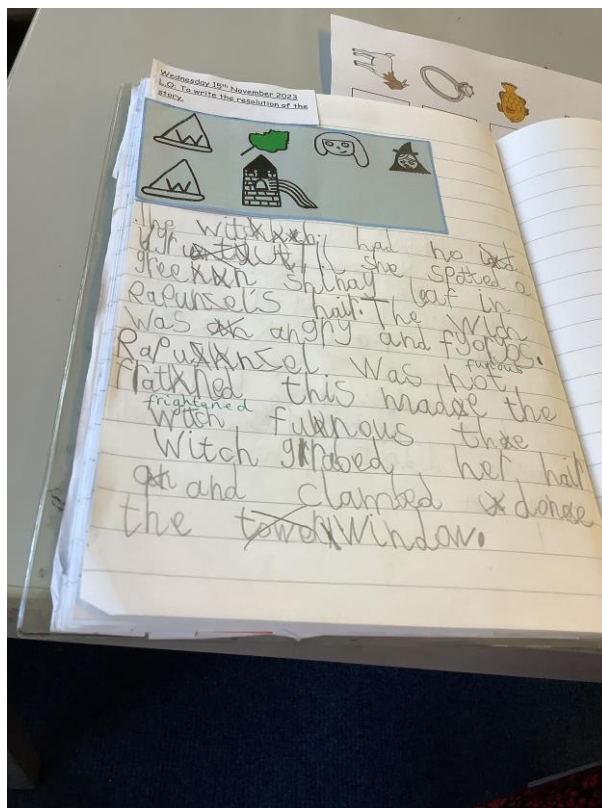 Wednesday 15th November 2023
L.O: To write the resolution of the
story.
W
W
The had no
she spotted a
green shinay leaf in
Rapunsel's hair. The Wich
was angry and fyoros.
furious
Rapunsel was not
flatned this made the
frightened
witch furnous the
Witch grabed her hair
and clambed donse
the window.